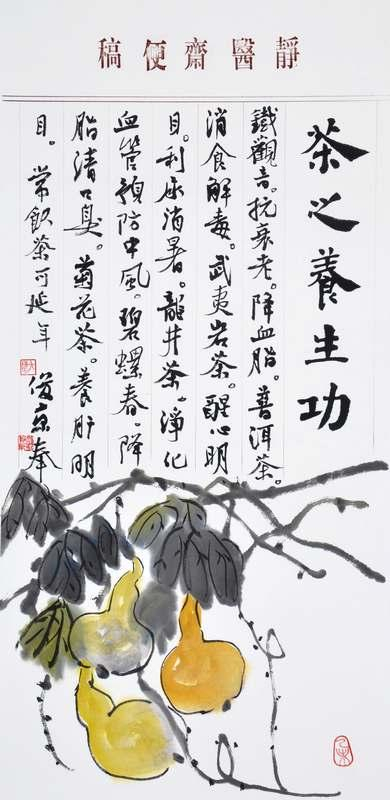 靜醫齋便稿
茶之養生功
鐵觀音。抗衰老。降血脂。普洱茶。
消食解毒。武夷岩茶。醒心明
目。利尿消暑。龍井茶。淨化
血管預防中風。碧螺春。降
脂清口臭。菊花茶。養肝明
目。常飲茶可延年